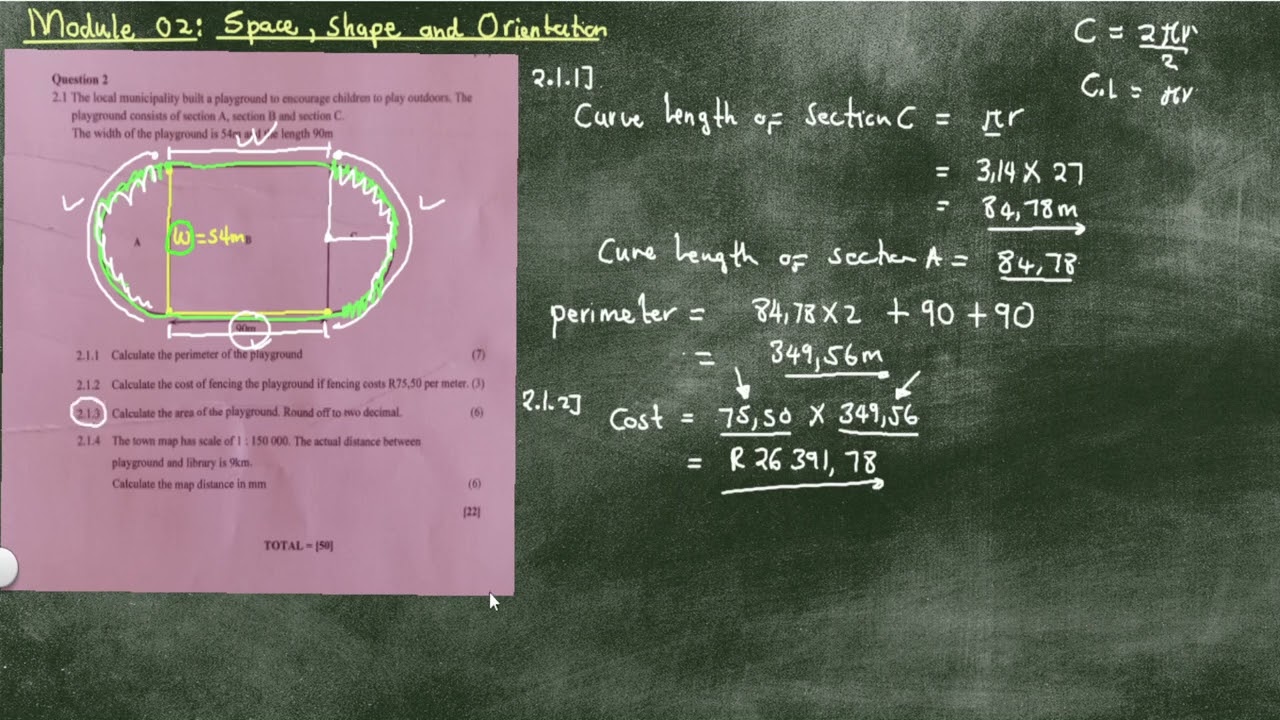 Module 02: Space, Shape and Orientation
Question 2
2.1 The local municipality built a playground to encourage children to play outdoors. The
playground consists of section A, section B and section C.
The width of the playground is 54m and the length 90m
W
A
W = 54m
90m
2.1.1 Calculate the perimeter of the playground (7)
2.1.2 Calculate the cost of fencing the playground if fencing costs R75,50 per meter. (3)
2.1.3 Calculate the area of the playground. Round off to two decimal. (6)
2.1.4 The town map has scale of 1 : 150 000. The actual distance between
playground and library is 9km.
Calculate the map distance in mm (6)
[22]
TOTAL = [50]
C = 2πr
2
C.L = πr
2.1.1]
Curve length of section C = πr
= 3,14 × 27
= 84,78m
Curve length of section A = 84,78
perimeter = 84,78 × 2 + 90 + 90
= 349,56m
2.1.2]
Cost = 75,50 × 349,56
= R 26 391,78